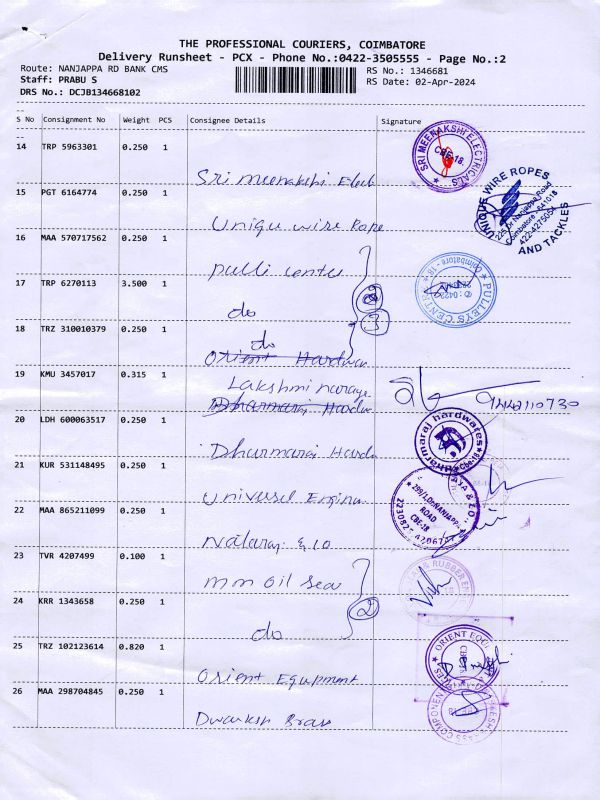 THE PROFESSIONAL COURIERS, COIMBATORE
Delivery Runsheet - PCX - Phone No.:0422-3505555 - Page No.:2
Route: NANJAPPA RD BANK CMS
RS No.: 1346681
Staff: PRABU S
RS Date: 02-Apr-2024
DRS No.: DCJB134668102
S No Consignment No Weight PCS Consignee Details Signature
14 TRP 5963301 0.250 1
SRI MEENAKSHI ELECTRICALS
CBE-18.
Sri meenakshi Elect
15 PGT 6164774 0.250 1
UNIQUE WIRE ROPES
Nanjappa Road
Coimbatore - 641018
AND TACKLES
Unique wire Rope
16 MAA 570717562 0.250 1
Pulli center
17 TRP 6270113 3.500 1
PULLEYS CENTRE
Coimbatore - 18
do
3
18 TRZ 310010379 0.250 1
do
Orient Hardwa
19 KMU 3457017 0.315 1
Lakshmi naraya
9442110730
Dharmaraj Hardw
20 LDH 600063517 0.250 1
Dharmaraj hardwares
Cbe-18
Dharmaraj Hardw
21 KUR 531148495 0.250 1
Universel Engin
22 MAA 865211099 0.250 1
NANJAPPA
ROAD
CBE-18
Nataraj & Co
23 TVR 4207499 0.100 1
mm oil sea
& RUBBER EN
24 KRR 1343658 0.250 1
2
do
25 TRZ 102123614 0.820 1
ORIENT EQUI
Orient Equipment
26 MAA 298704845 0.250 1
COMPONENT
Dwarkesh Brass